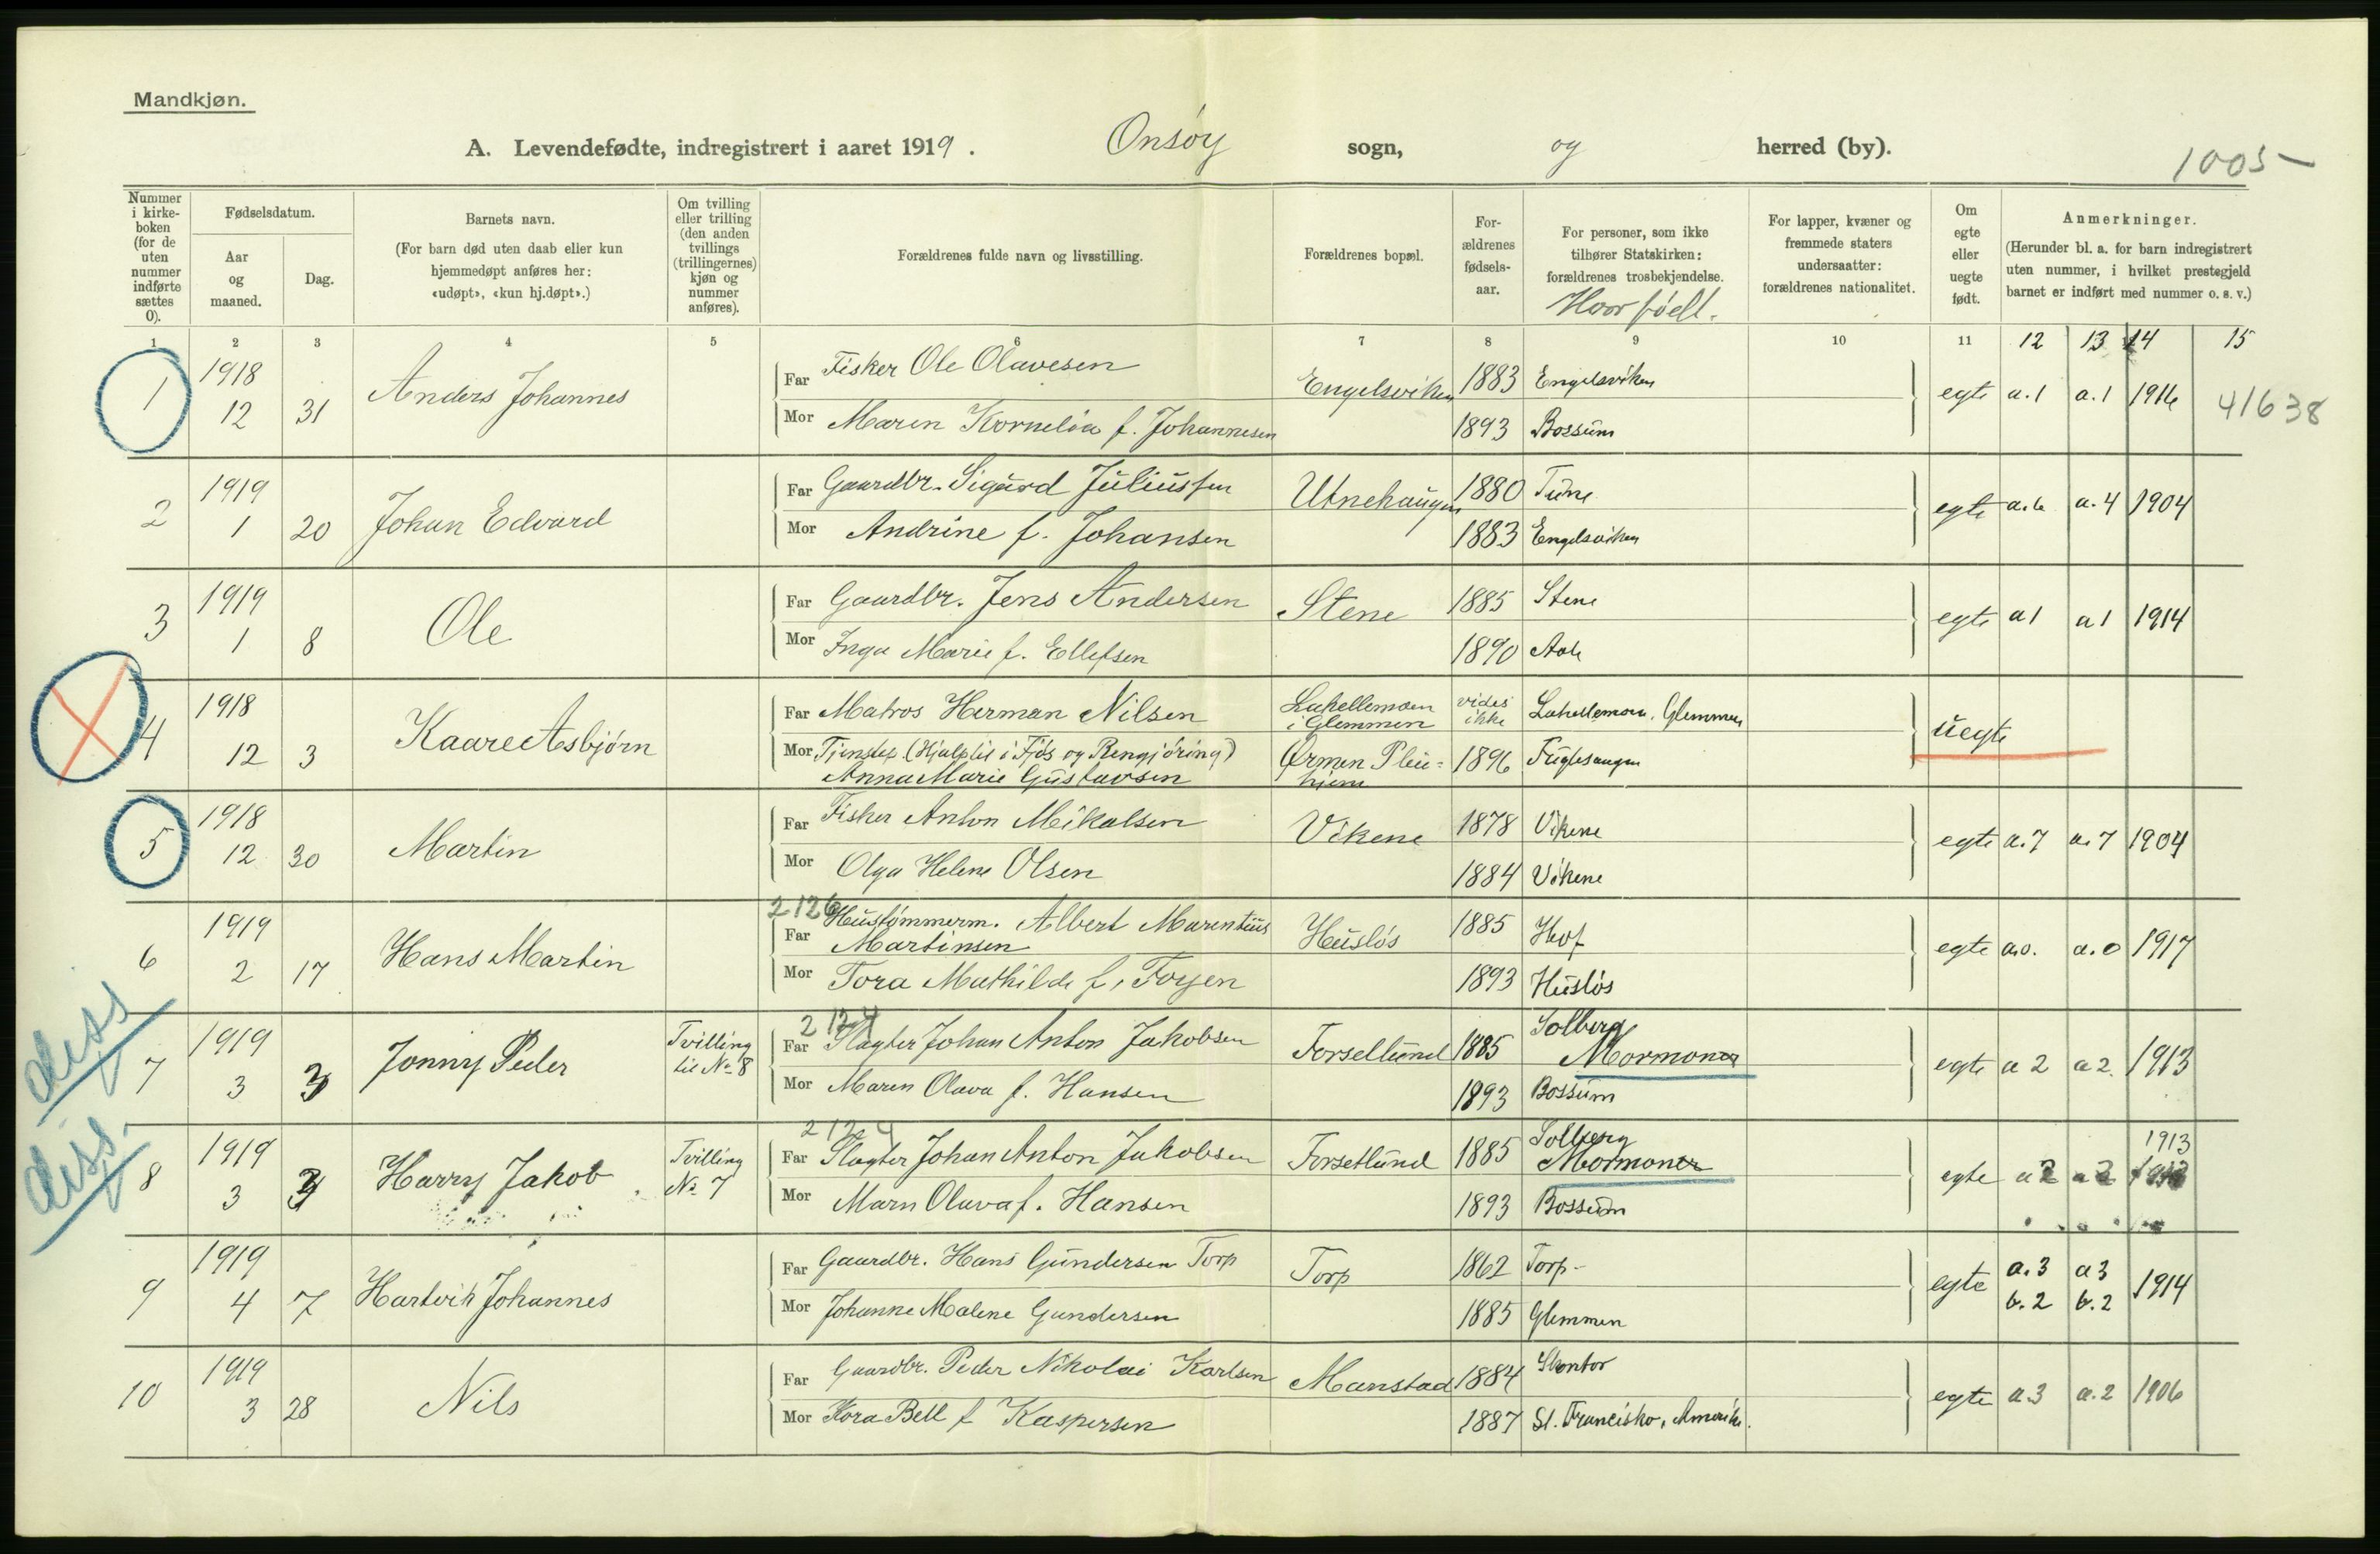 Mandkjøn.
A. Levendefødte, indregistrert i aaret 1919. Onsøy sogn, og herred (by).
1005 –
Nummer i kirke-boken (for de uten nummer indførte sættes 0).
Fødselsdatum.
Aar og maaned.
Dag.
Barnets navn.
(For barn død uten daab eller kun hjemmedøpt anføres her: «udøpt», «kun hj.døpt».)
Om tvilling eller trilling (den anden tvillings (trillingernes) kjøn og nummer anføres).
Forældrenes fulde navn og livsstilling.
Forældrenes bopæl.
For-ældrenes fødsels-aar.
For personer, som ikke tilhører Statskirken: forældrenes trosbekjendelse.
Hvor født.
For lapper, kvæner og fremmede staters undersaatter: forældrenes nationalitet.
Om egte eller uegte født.
Anmerkninger.
(Herunder bl. a. for barn indregistrert uten nummer, i hvilket prestegjeld barnet er indført med nummer o. s. v.)
1 2 3 4 5 6 7 8 9 10 11 12 13 14 15
1 1918 12 31 Anders Johannes
Far Fisker Ole Olavesen Engelsviken 1883 Engelsviken
Mor Maren Kornelia f. Johannesen 1893 Bossum
egte a.1 a.1 1916 41638
2 1919 1 20 Johan Edvard
Far Gaardbr. Sigurd Juliussen Utnehaugen 1880 Tune
Mor Andrine f. Johansen 1883 Engelsviken
egte a.6 a.4 1904
3 1919 1 8 Ole
Far Gaardbr. Jens Andersen Stene 1885 Stene
Mor Inga Marie f. Ellefsen 1890 Aale
egte a1 a1 1914
4 1918 12 3 Kaare Asbjørn
Far Matros Herman Nilsen Lahellemoen i Glemmen vides ikke Lahellemoen, Glemmen
Mor Tjenstep. (Hjælp til i Fjøs og Rengjøring) Anna Marie Gustavsen Ørmen Pleie=hjem 1896 Fuglesangen
uegte
5 1918 12 30 Martin
Far Fisker Anton Mikalsen Vikene 1878 Vikene
Mor Olga Helene Olsen 1884 Vikene
egte a.7 a.7 1904
6 1919 2 17 Hans Martin
2126
Far Hustømmerm. Albert Marentius Martinsen Husløs 1885 Hof
Mor Tora Mathilde f. Torjen 1893 Husløs
egte a.0. a.0 1917
diss
7 1919 3 3 Jonny Peder Tvilling til No 8
2124
Far Slagter Johan Anton Jakobsen Forsetlund 1885 Solberg Mormoner
Mor Maren Olava f. Hansen 1893 Bossum
egte a 2 a 2. 1913
diss.
8 1919 3 3 Harry Jakob Tvilling No 7
2124
Far Slagter Johan Anton Jakobsen Forsetlund 1885 Solberg Mormoner
Mor Marn Olava f. Hansen 1893 Bossum
egte a2 a2 1913
9 1919 4 7 Hartvik Johannes
Far Gaardbr. Hans Gundersen Torp Torp 1862 Torp
Mor Johanne Malene Gundersen 1885 Glemmen
egte a.3 b.2 a3 b.2 1914
10 1919 3 28 Nils
Far Gaardbr. Peder Nikolai Karlsen Manstad 1884 Skontor
Mor Kora Bell f Kaspersen 1887 St. Francisko, Amerika.
egte a.3 a.2 1906